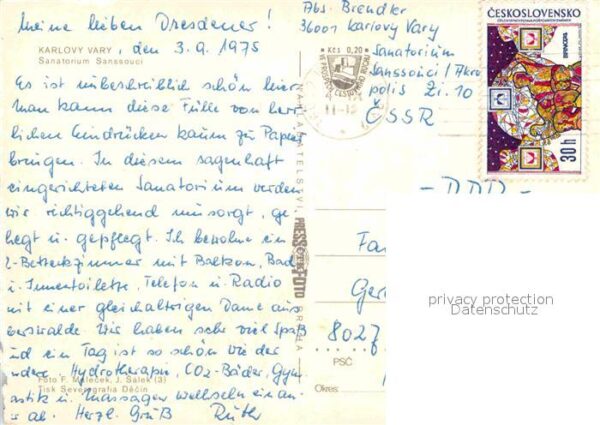 Meine lieben Dresdener!
KARLOVY VARY, den 3.9.1975
Sanatorium Sanssouci
Es ist unbeschreiblich schön hier
man kann diese Fülle von herr-
lichen Eindrücken kaum zu Papier
bringen. In diesem sagenhaft
eingerichteten Sanatorium werden
wir richtiggehend umsorgt, ge-
hegt u. gepflegt. Ich bewohne ein
2-Bettzimmer mit Balkon, Bad
u. Innentoilette, Telefon u. Radio
mit einer gleichaltrigen Dame aus
erswalde. Wir haben sehr viel Spaß
und ein Tag ist so schön wie der
andere. Hydrotherapie, CO2-Bäder, Gym-
Foto F. Maleček, J. Sálek (3)
astik u. Massagen wechseln einan-
Tisk Severografia Děčín
er ab. Herzl. Gruß Ruth
Abs. Brendler
36001 Karlovy Vary
Sanatorium
Sanssouci / Akro
polis Zi. 10
ČSSR
Kčs 0,20
ČESKOSLOVENSKO
30 h
- DDR -
NAKLADATELSTVÍ
PRESSFOTO
PRAHA
Fa
Ger
8027
PSČ
Okres:
privacy protection
Datenschutz